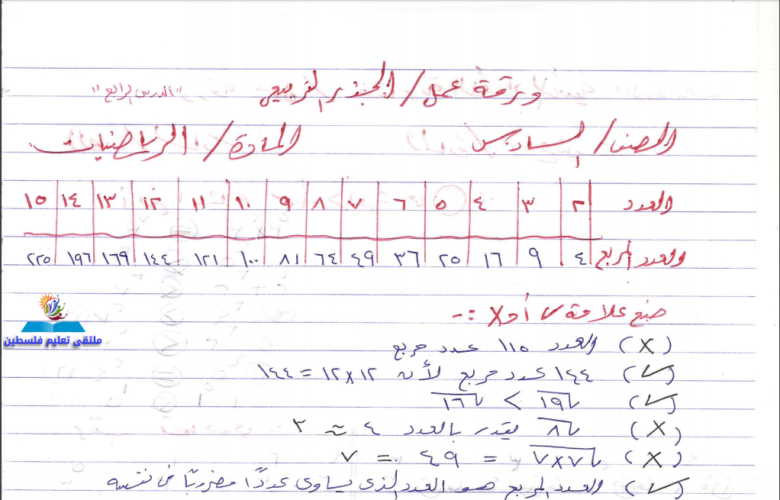 ورقة عمل / الجذر التربيعي "الدرس الرابع"
الصف / السادس المادة / الرياضيات
العدد ٢ ٣ ٤ ٥ ٦ ٧ ٨ ٩ ١٠ ١١ ١٢ ١٣ ١٤ ١٥
العدد المربع ٤ ٩ ١٦ ٢٥ ٣٦ ٤٩ ٦٤ ٨١ ١٠٠ ١٢١ ١٤٤ ١٦٩ ١٩٦ ٢٢٥
ضع علامة √ أو X :-
(X) العدد ١١٥ عدد مربع
(√) ١٤٤ عدد مربع لأن ١٢×١٢ = ١٤٤
(√) √١٩ > √١٦
(X) √٨ يقدر بالعدد ٤ ≈ ٢
(X) √٧×٧ = ٤٩ = ٧
(√) العدد المربع هو العدد الذي يساوي عددًا مضروبًا في نفسه
ملتقى تعليم فلسطين